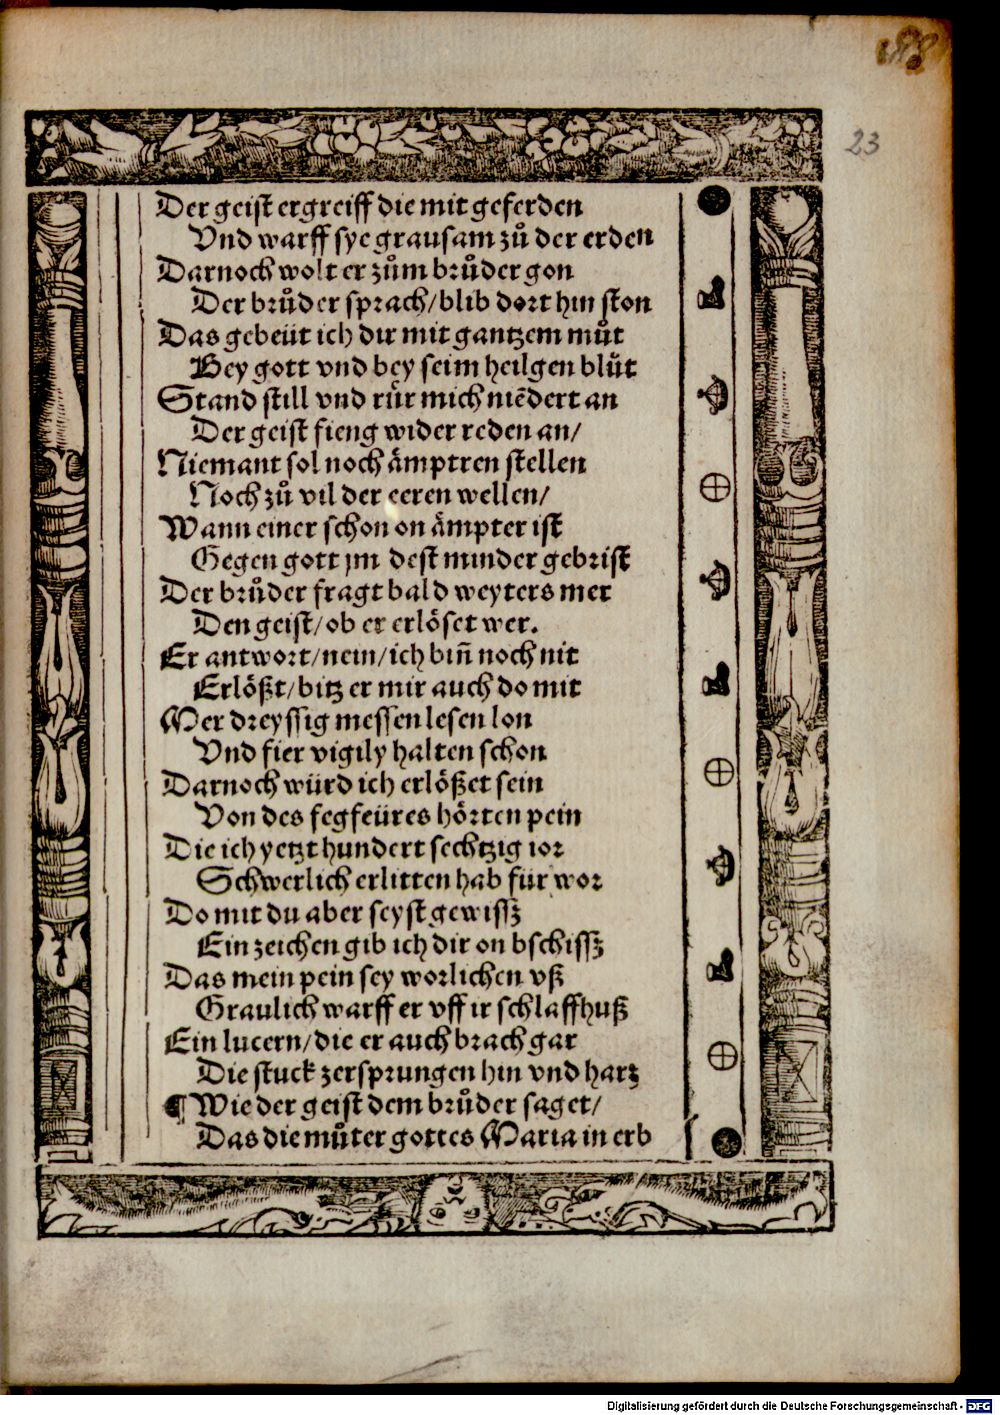 23
Der geist ergreiff die mit geferden
Vnd warff sye grausam zů der erden
Darnoch wolt er zům brůder gon
Der brůder sprach/blib dort hin ston
Das gebeüt ich dir mit gantzem můt
Bey gott vnd bey seim heilgen blůt
Stand still vnd rür mich niēdert an
Der geist fieng wider reden an/
Niemant sol noch ämptren stellen
Noch zů vil der eeren wellen/
Wann einer schon on ämpter ist
Gegen gott jm dest minder gebrist
Der brůder fragt bald weyters mer
Den geist/ob er erlöset wer.
Er antwort/nein/ich biñ noch nit
Erlößt/bitz er mir auch do mit
Mer dreyssig messen lesen lon
Vnd fier vigily halten schon
Darnoch würd ich erlößet sein
Von des fegfeüres hörten pein
Die ich yetzt hundert sechtzig ior
Schwerlich erlitten hab für wor
Do mit du aber seyst gewissz
Ein zeichen gib ich dir on bschissz
Das mein pein sey worlichen vß
Graulich warff er vff ir schlaffhuß
Ein lucern/die er auch brach gar
Die stuck zersprungen hin vnd hartz
¶ Wie der geist dem brůder saget/
Das die můter gottes Maria in erb
Digitalisierung gefördert durch die Deutsche Forschungsgemeinschaft - DFG